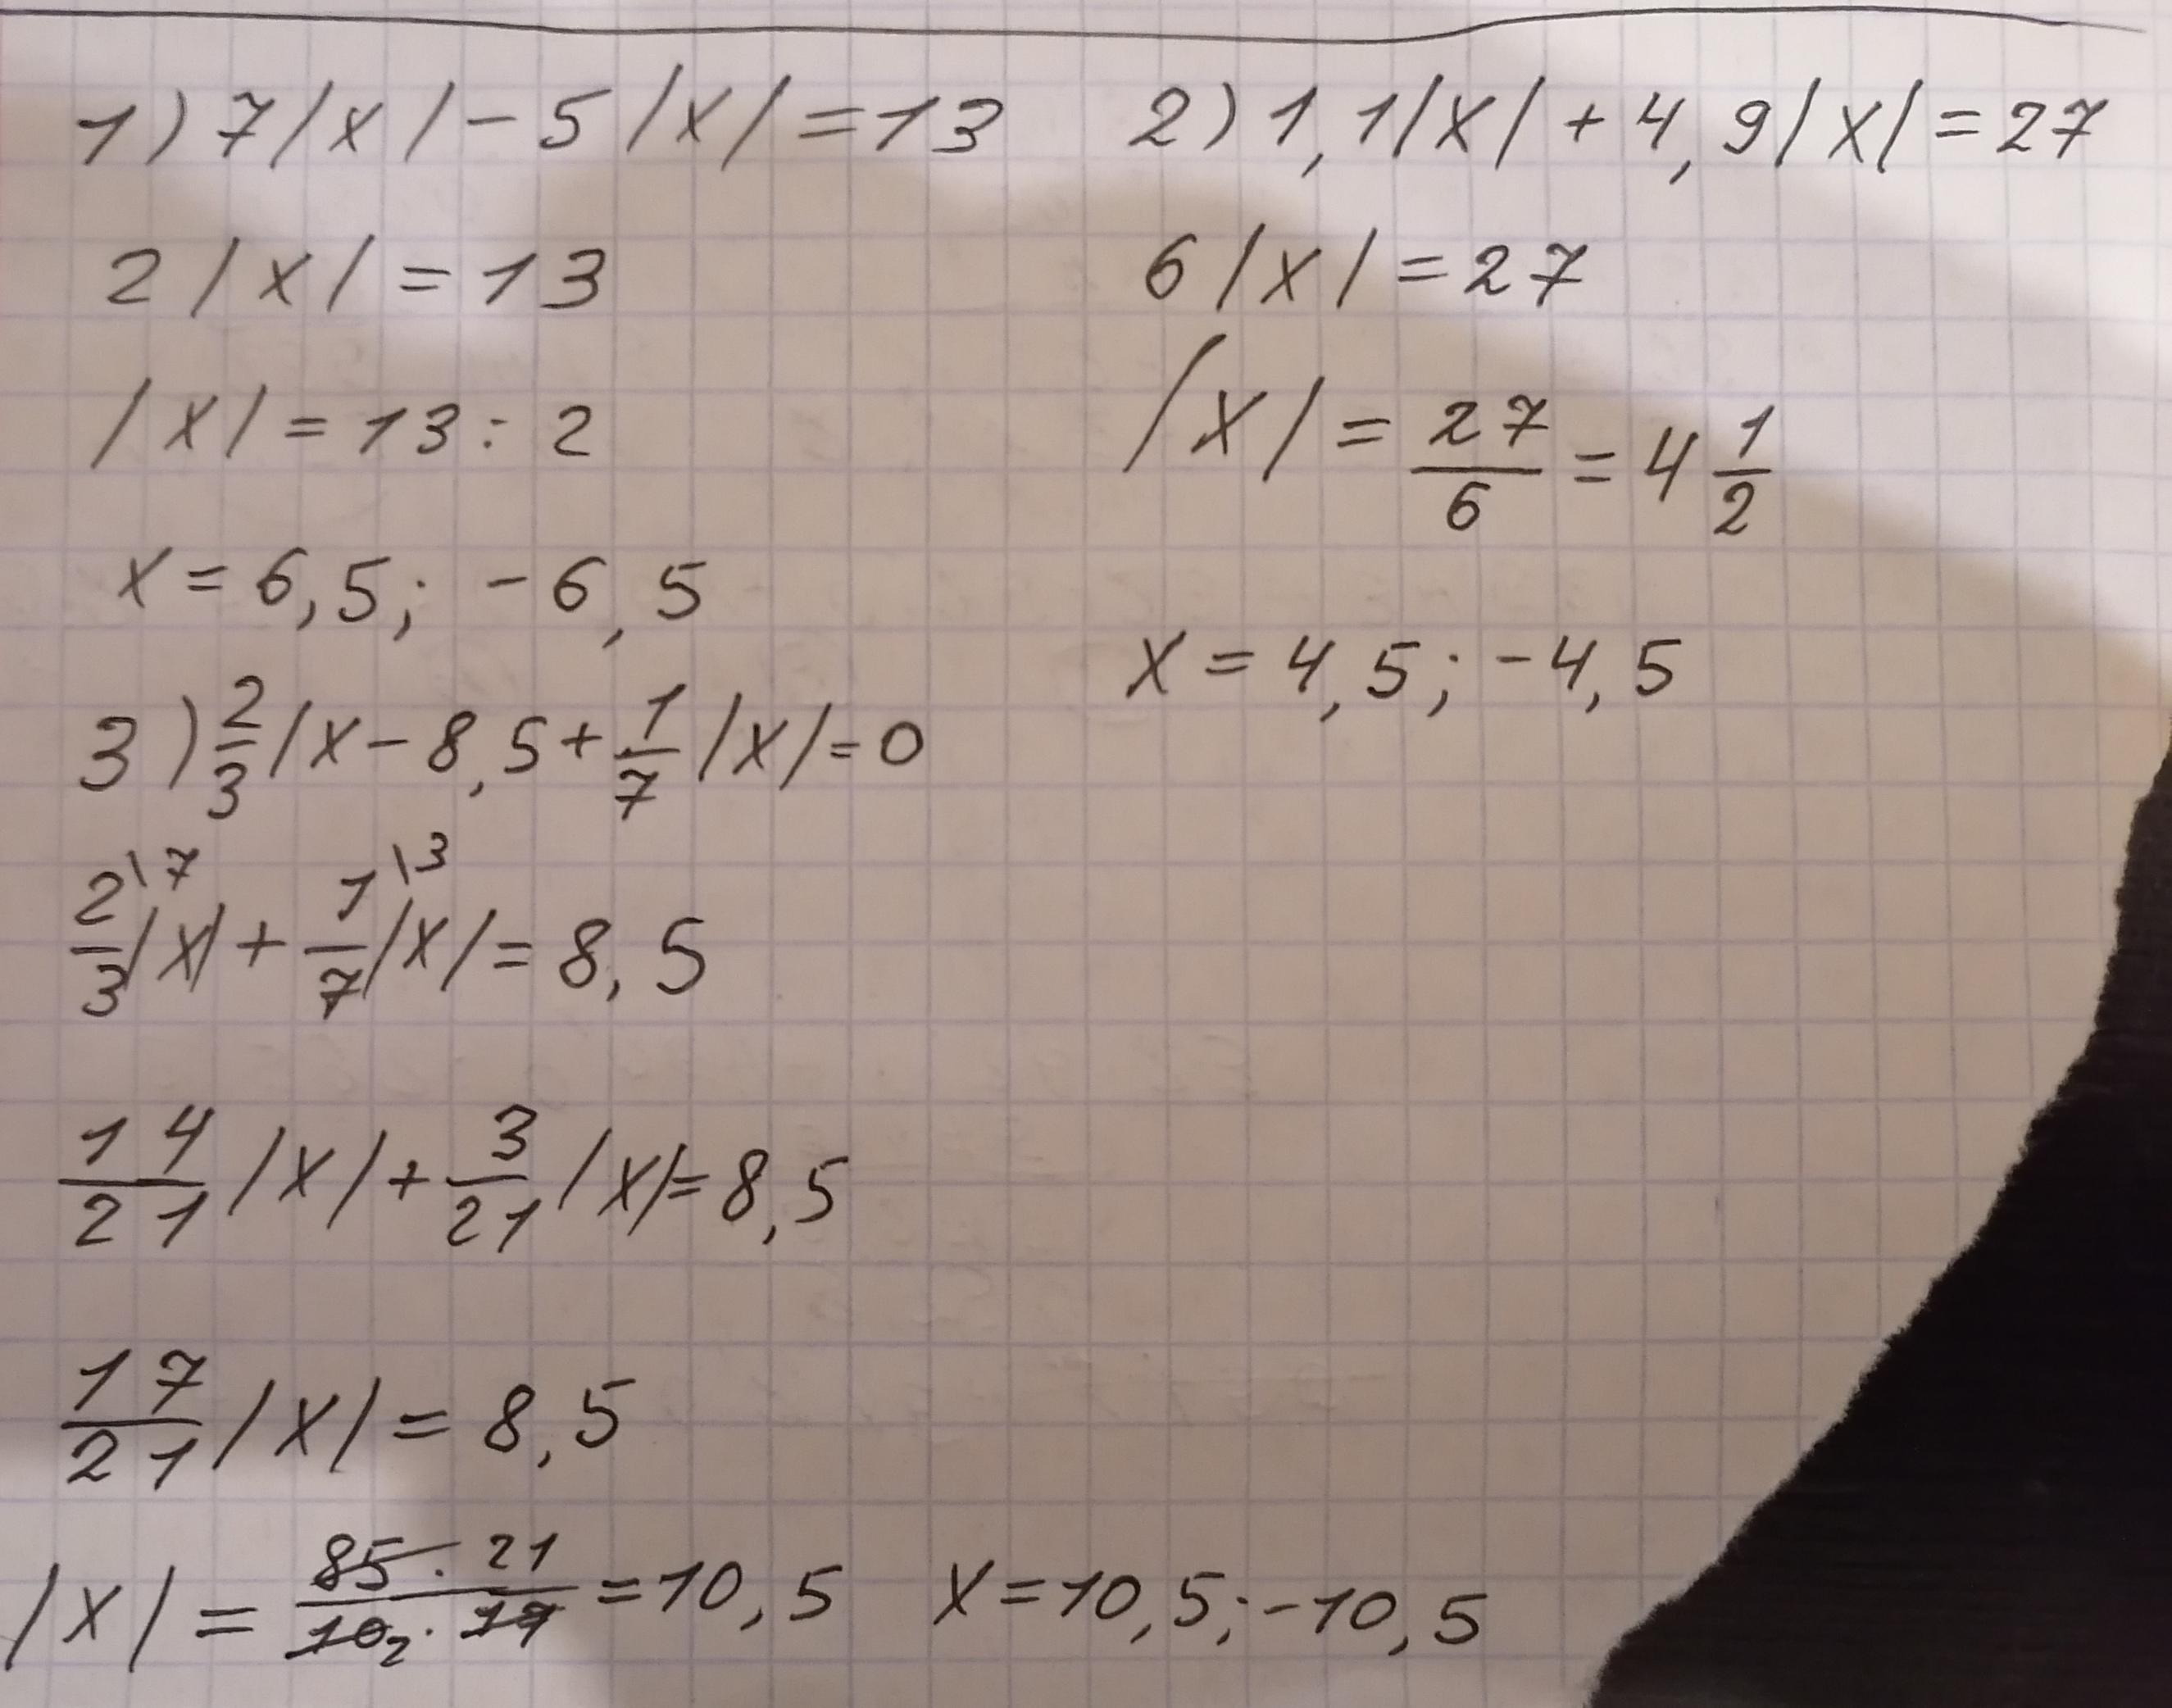 1) 7|x| - 5|x| = 13
2|x| = 13
|x| = 13 : 2
x = 6,5; -6,5
2) 1,1|x| + 4,9|x| = 27
6|x| = 27
|x| = 27/6 = 4 1/2
x = 4,5; -4,5
3) 2/3|x - 8,5 + 1/7|x| = 0
2\7/3|x| + 1\3/7|x| = 8,5
14/21|x| + 3/21|x| = 8,5
17/21|x| = 8,5
|x| = 85 · 21/10 2 · 17 = 10,5 x = 10,5; -10,5